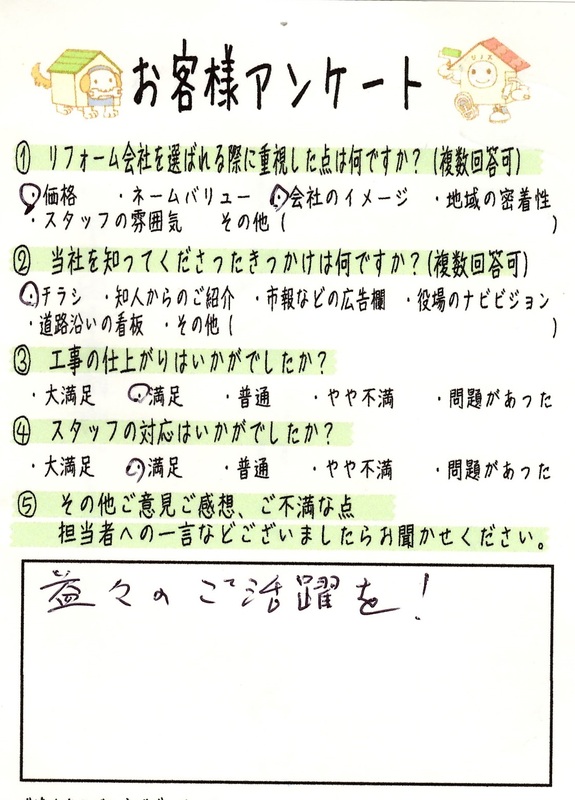 お客様アンケート
① リフォーム会社を選ばれる際に重視した点は何ですか？(複数回答可)
・価格 ・ネームバリュー ・会社のイメージ ・地域の密着性
・スタッフの雰囲気 その他( )
② 当社を知ってくださったきっかけは何ですか？(複数回答可)
・チラシ ・知人からのご紹介 ・市報などの広告欄 ・役場のナビビジョン
・道路沿いの看板 ・その他( )
③ 工事の仕上がりはいかがでしたか？
・大満足 ・満足 ・普通 ・やや不満 ・問題があった
④ スタッフの対応はいかがでしたか？
・大満足 ・満足 ・普通 ・やや不満 ・問題があった
⑤ その他ご意見ご感想、ご不満な点
担当者への一言などございましたらお聞かせください。
益々のご活躍を！